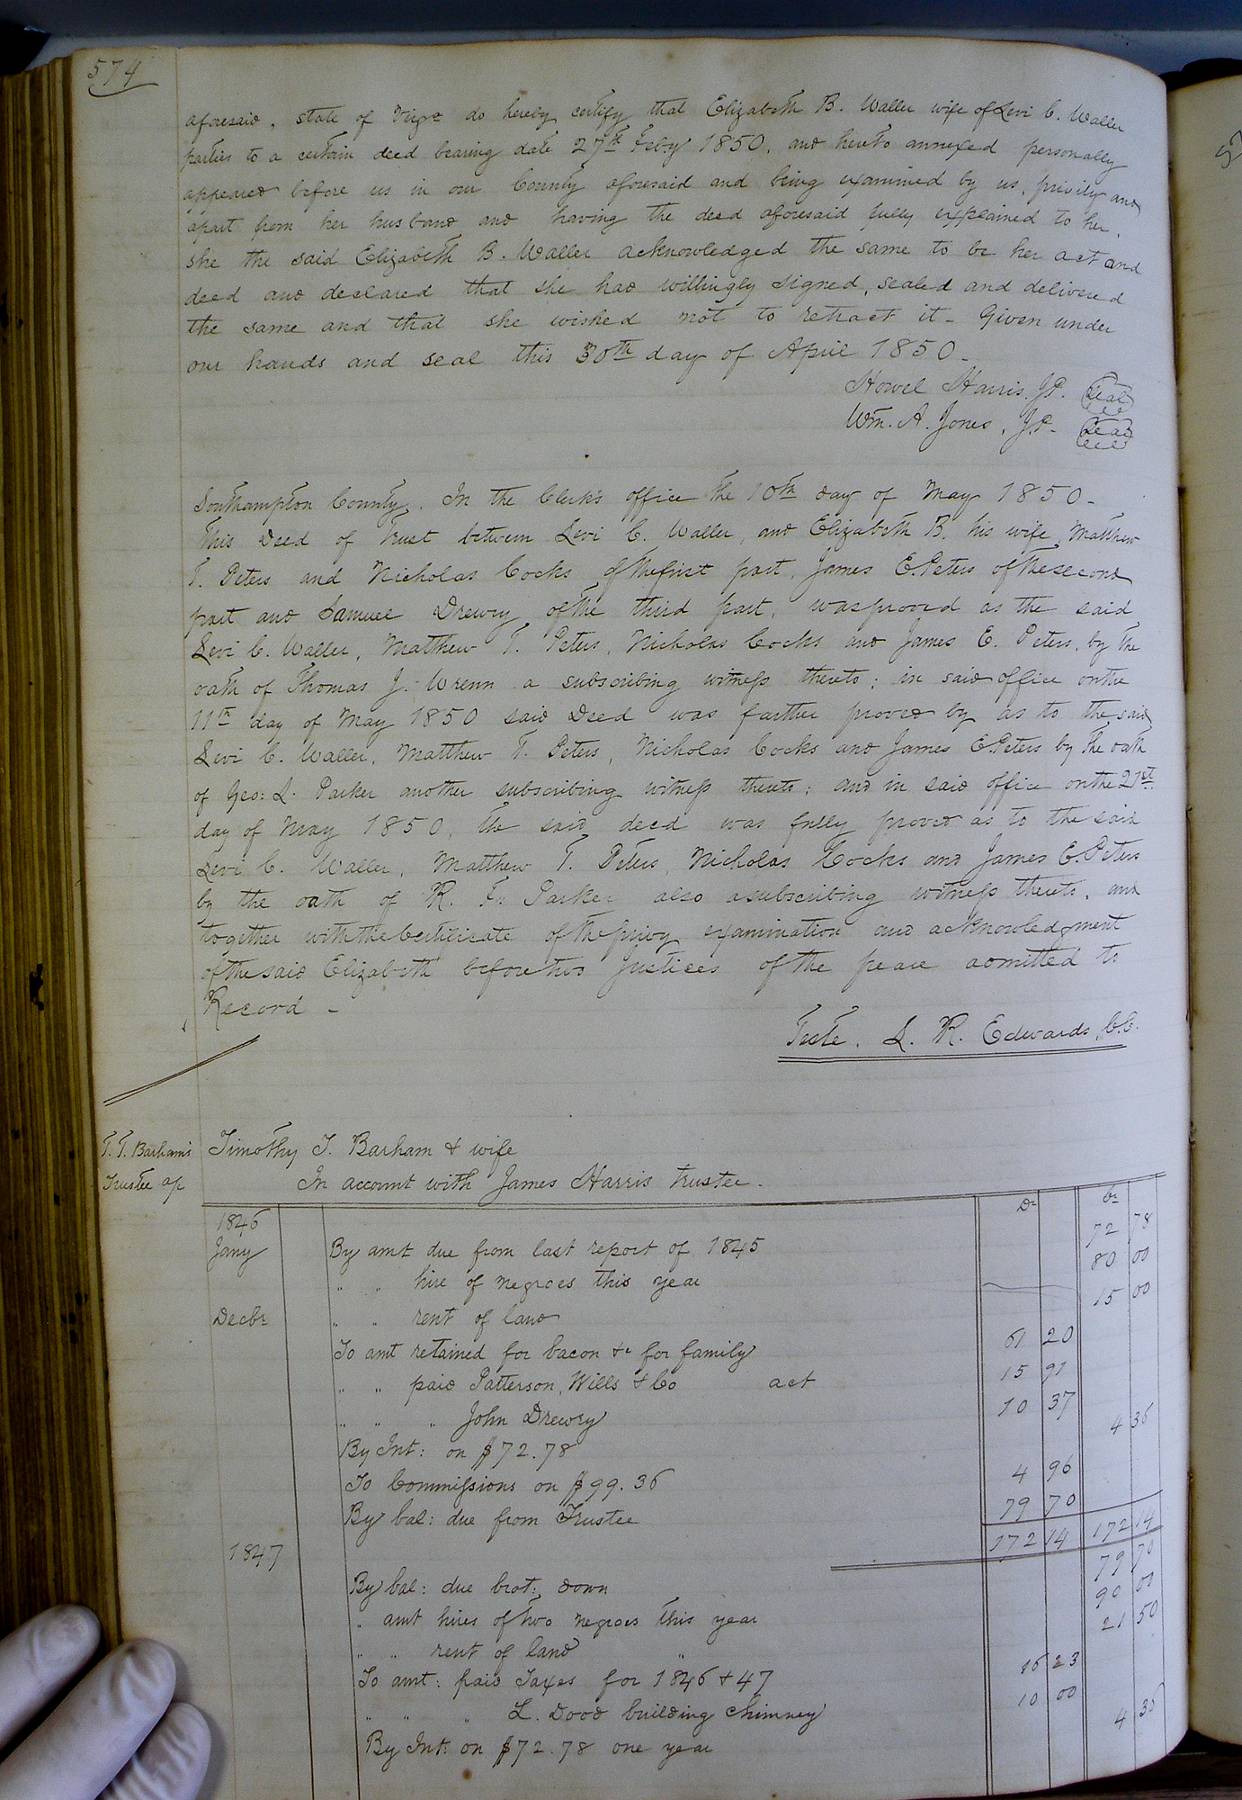 574
aforesaid, state of Virga do hereby certify that Elizabeth B. Waller wife of Levi C. Waller
parties to a certain deed bearing date 27th Feby 1850, and hereto annexed personally
appeared before us in our County aforesaid and being examined by us, privily and
apart from her husband and having the deed aforesaid fully explained to her,
she the said Elizabeth B. Waller acknowledged the same to be her act and
deed and declared that she had willingly signed, sealed and delivered
the same and that she wished not to retract it - Given under
our hands and seal this 30th day of April 1850 -
Howel Harris. J.P. Seal
Wm. A. Jones, J.P. Seal
Southampton County. In the Clerk's office the 10th day of May 1850 -
This Deed of Trust between Levi C. Waller, and Elizabeth B. his wife, Matthew
T. Peters and Nicholas Cocks of the first part, James E. Peters of the second
part and Samuel Drewry of the third part, was proved as the said
Levi C. Waller, Matthew T. Peters, Nicholas Cocks and James E. Peters, by the
oath of Thomas J. Wrenn a subscribing witness thereto; in said office on the
11th day of May 1850 said Deed was farther proved by as to the said
Levi C. Waller, Matthew T. Peters, Nicholas Cocks and James E Peters by the oath
of Geo: L. Parker another subscribing witness thereto; and in said office on the 21st
day of May 1850, the said deed was fully proved as to the said
Levi C. Waller, Matthew T. Peters, Nicholas Cocks and James E. Peters
by the oath of R. F. Parker also a subscribing witness thereto, and
together with the Certificate of the privy examination and acknowledgment
of the said Elizabeth before two Justices of the peace admitted to
Record -
Teste. L. R. Edwards, C.C.
T. T. Barham's
Trustee ap
Timothy T. Barham & wife
In account with James Harris trustee.
Dr Cr
1846
Jany By amt due from last report of 1845 72 78
" " hire of negroes this year 80 00
Decbr " " rent of land 15 00
To amt retained for bacon &c for family 61 20
" " paid Patterson, Wills & Co act 15 91
" " " John Drewry 10 37
By Int: on $72.78 4 36
To Commissions on $99.36 4 96
By bal: due from Trustee 79 70
172 14 172 14
1847
By bal: due brot: down 79 70
" amt hires of two negroes this year 90 00
" " rent of land " 21 50
To amt: paid Taxes for 1846 & 47 16 23
" " " L. Dood building chimney 10 00
By Int: on $72.78 one year 4 36